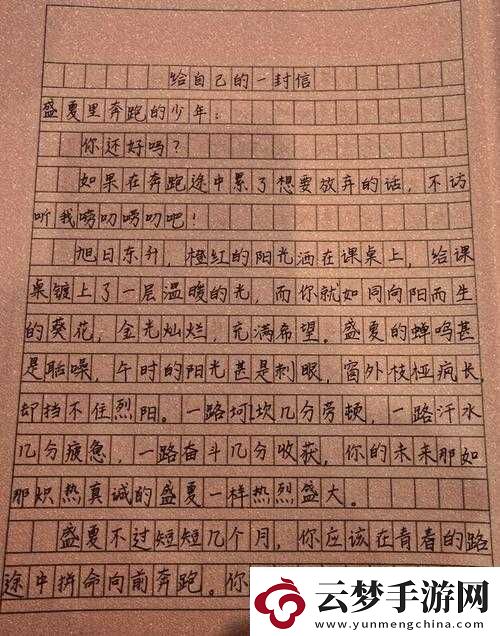 给自己的一封信
盛夏里奔跑的少年：
你还好吗？
如果在奔跑途中累了想要放弃的话，不访
听我唠叨唠叨吧！
旭日东升，橙红的阳光洒在课桌上，给课
桌镀上了一层温暖的光，而你就如同向阳而生
的葵花，金光灿烂，充满希望。盛夏的蝉鸣甚
是聒噪，午时的阳光甚是刺眼，窗外枝桠疯长，
却挡不住烈阳。一路坷坎几分劳顿，一路汗水
几分疲惫，一路奋斗几分收获，你的未来那如
那炽热真诚的盛夏一样热烈盛大。
盛夏不过短短几个月，你应该在青春的路
途中拼命向前奔跑。你
云梦手游网
www.yunmengchina.com